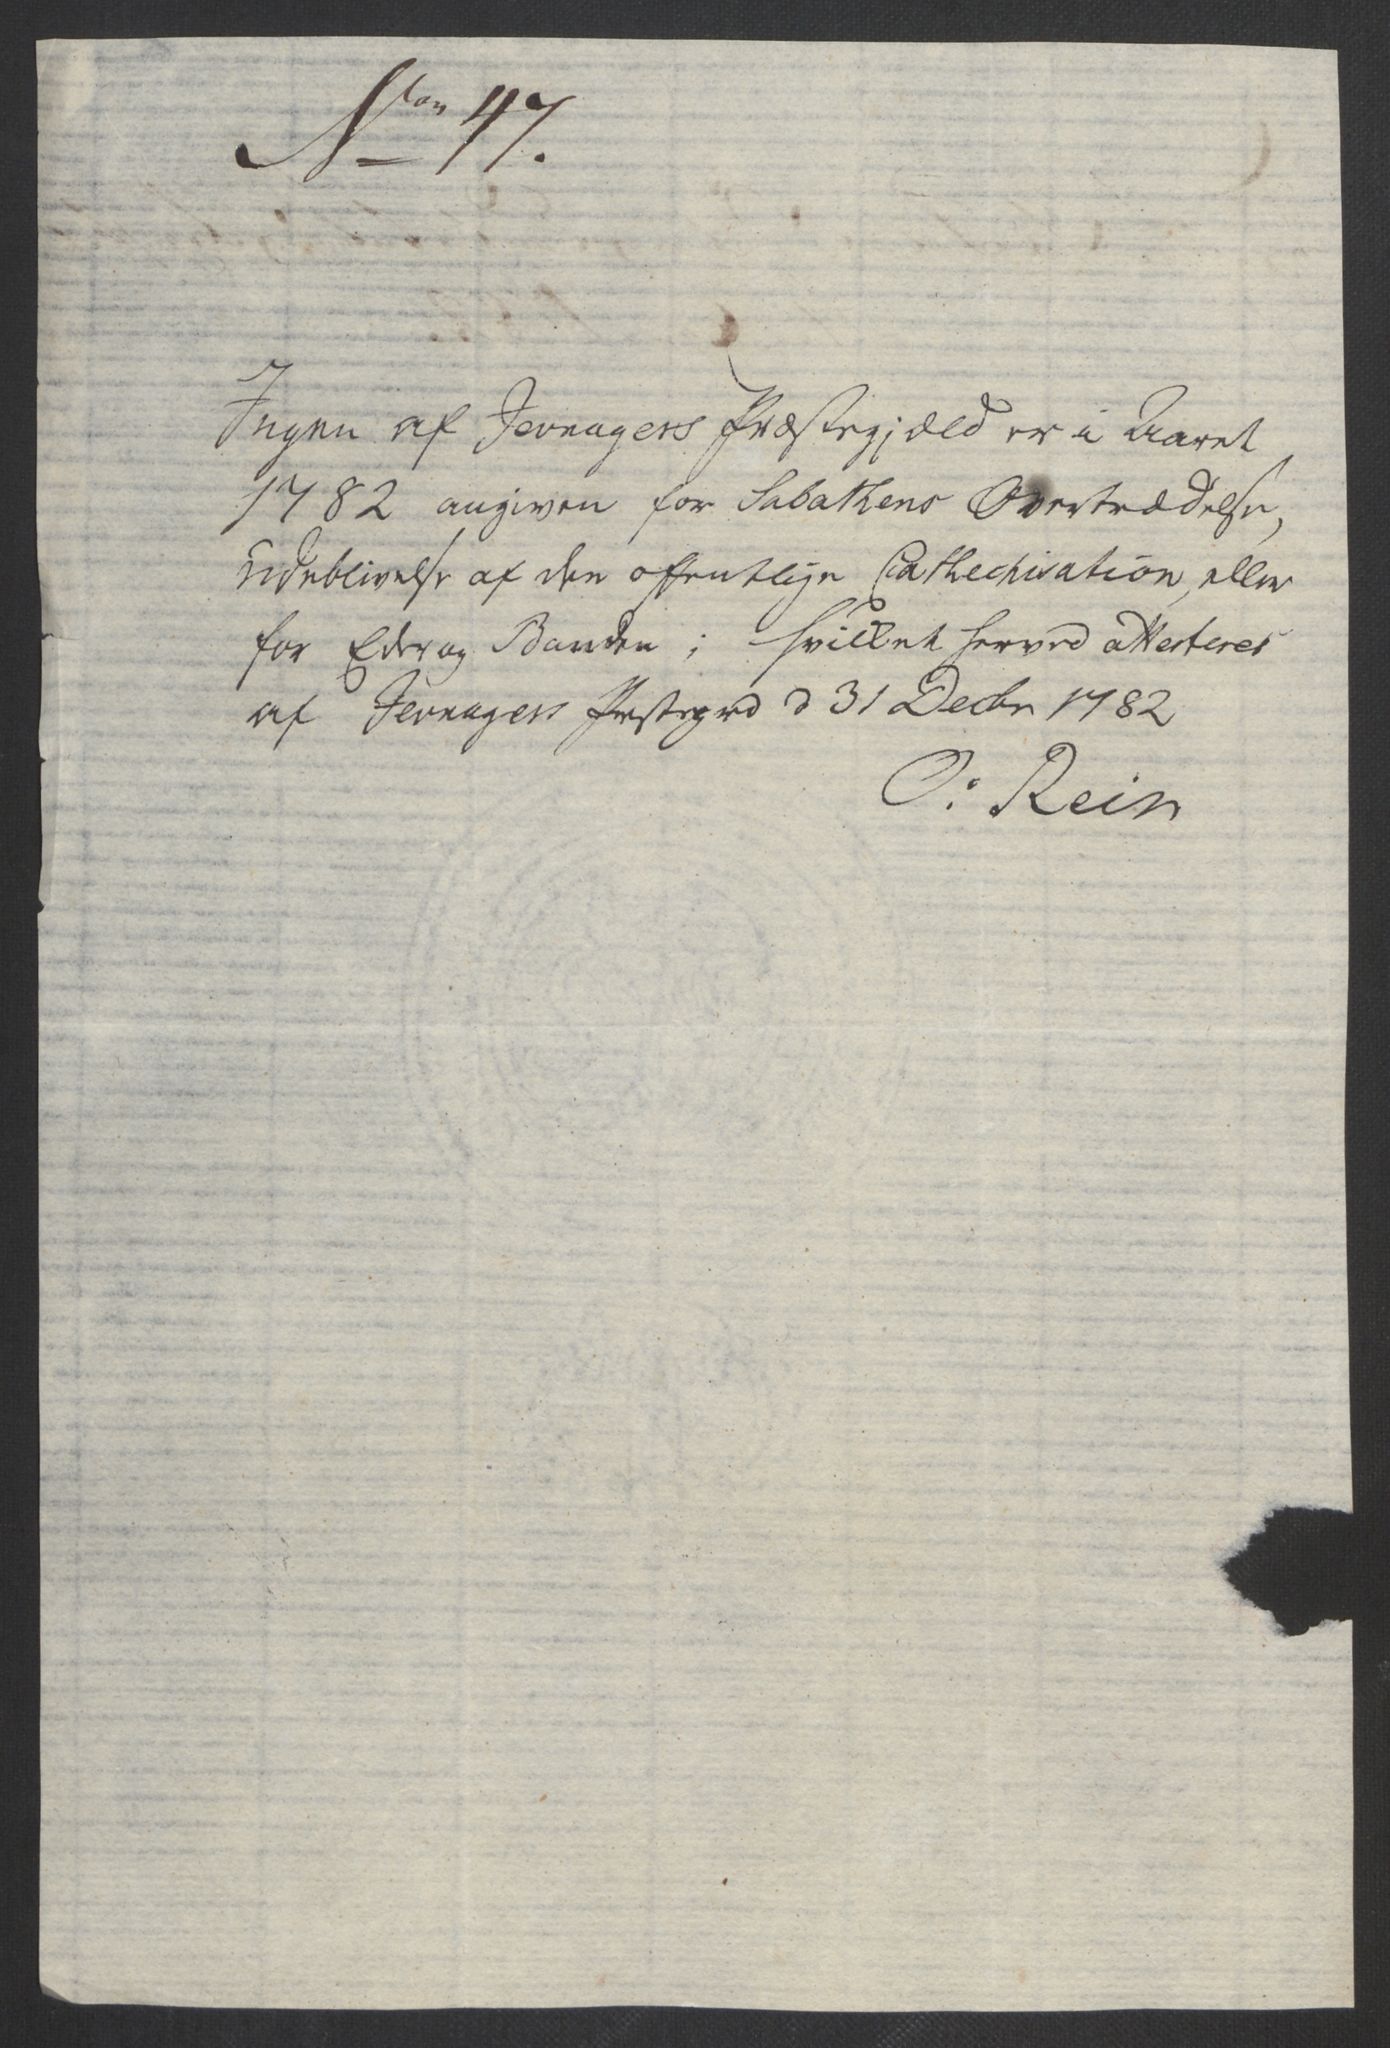 Nton 47.
Ingen af Jevnagers Præstegjæld er i Aaret
1782 angiven for Sabathens Overtrædelse,
Udeblivelse af den offentlige Cathechisation, eller
for Eder og Banden; hvilket herved attesteres
af Jevnagers Prestegrd d 31 Decbr 1782
O: Rein